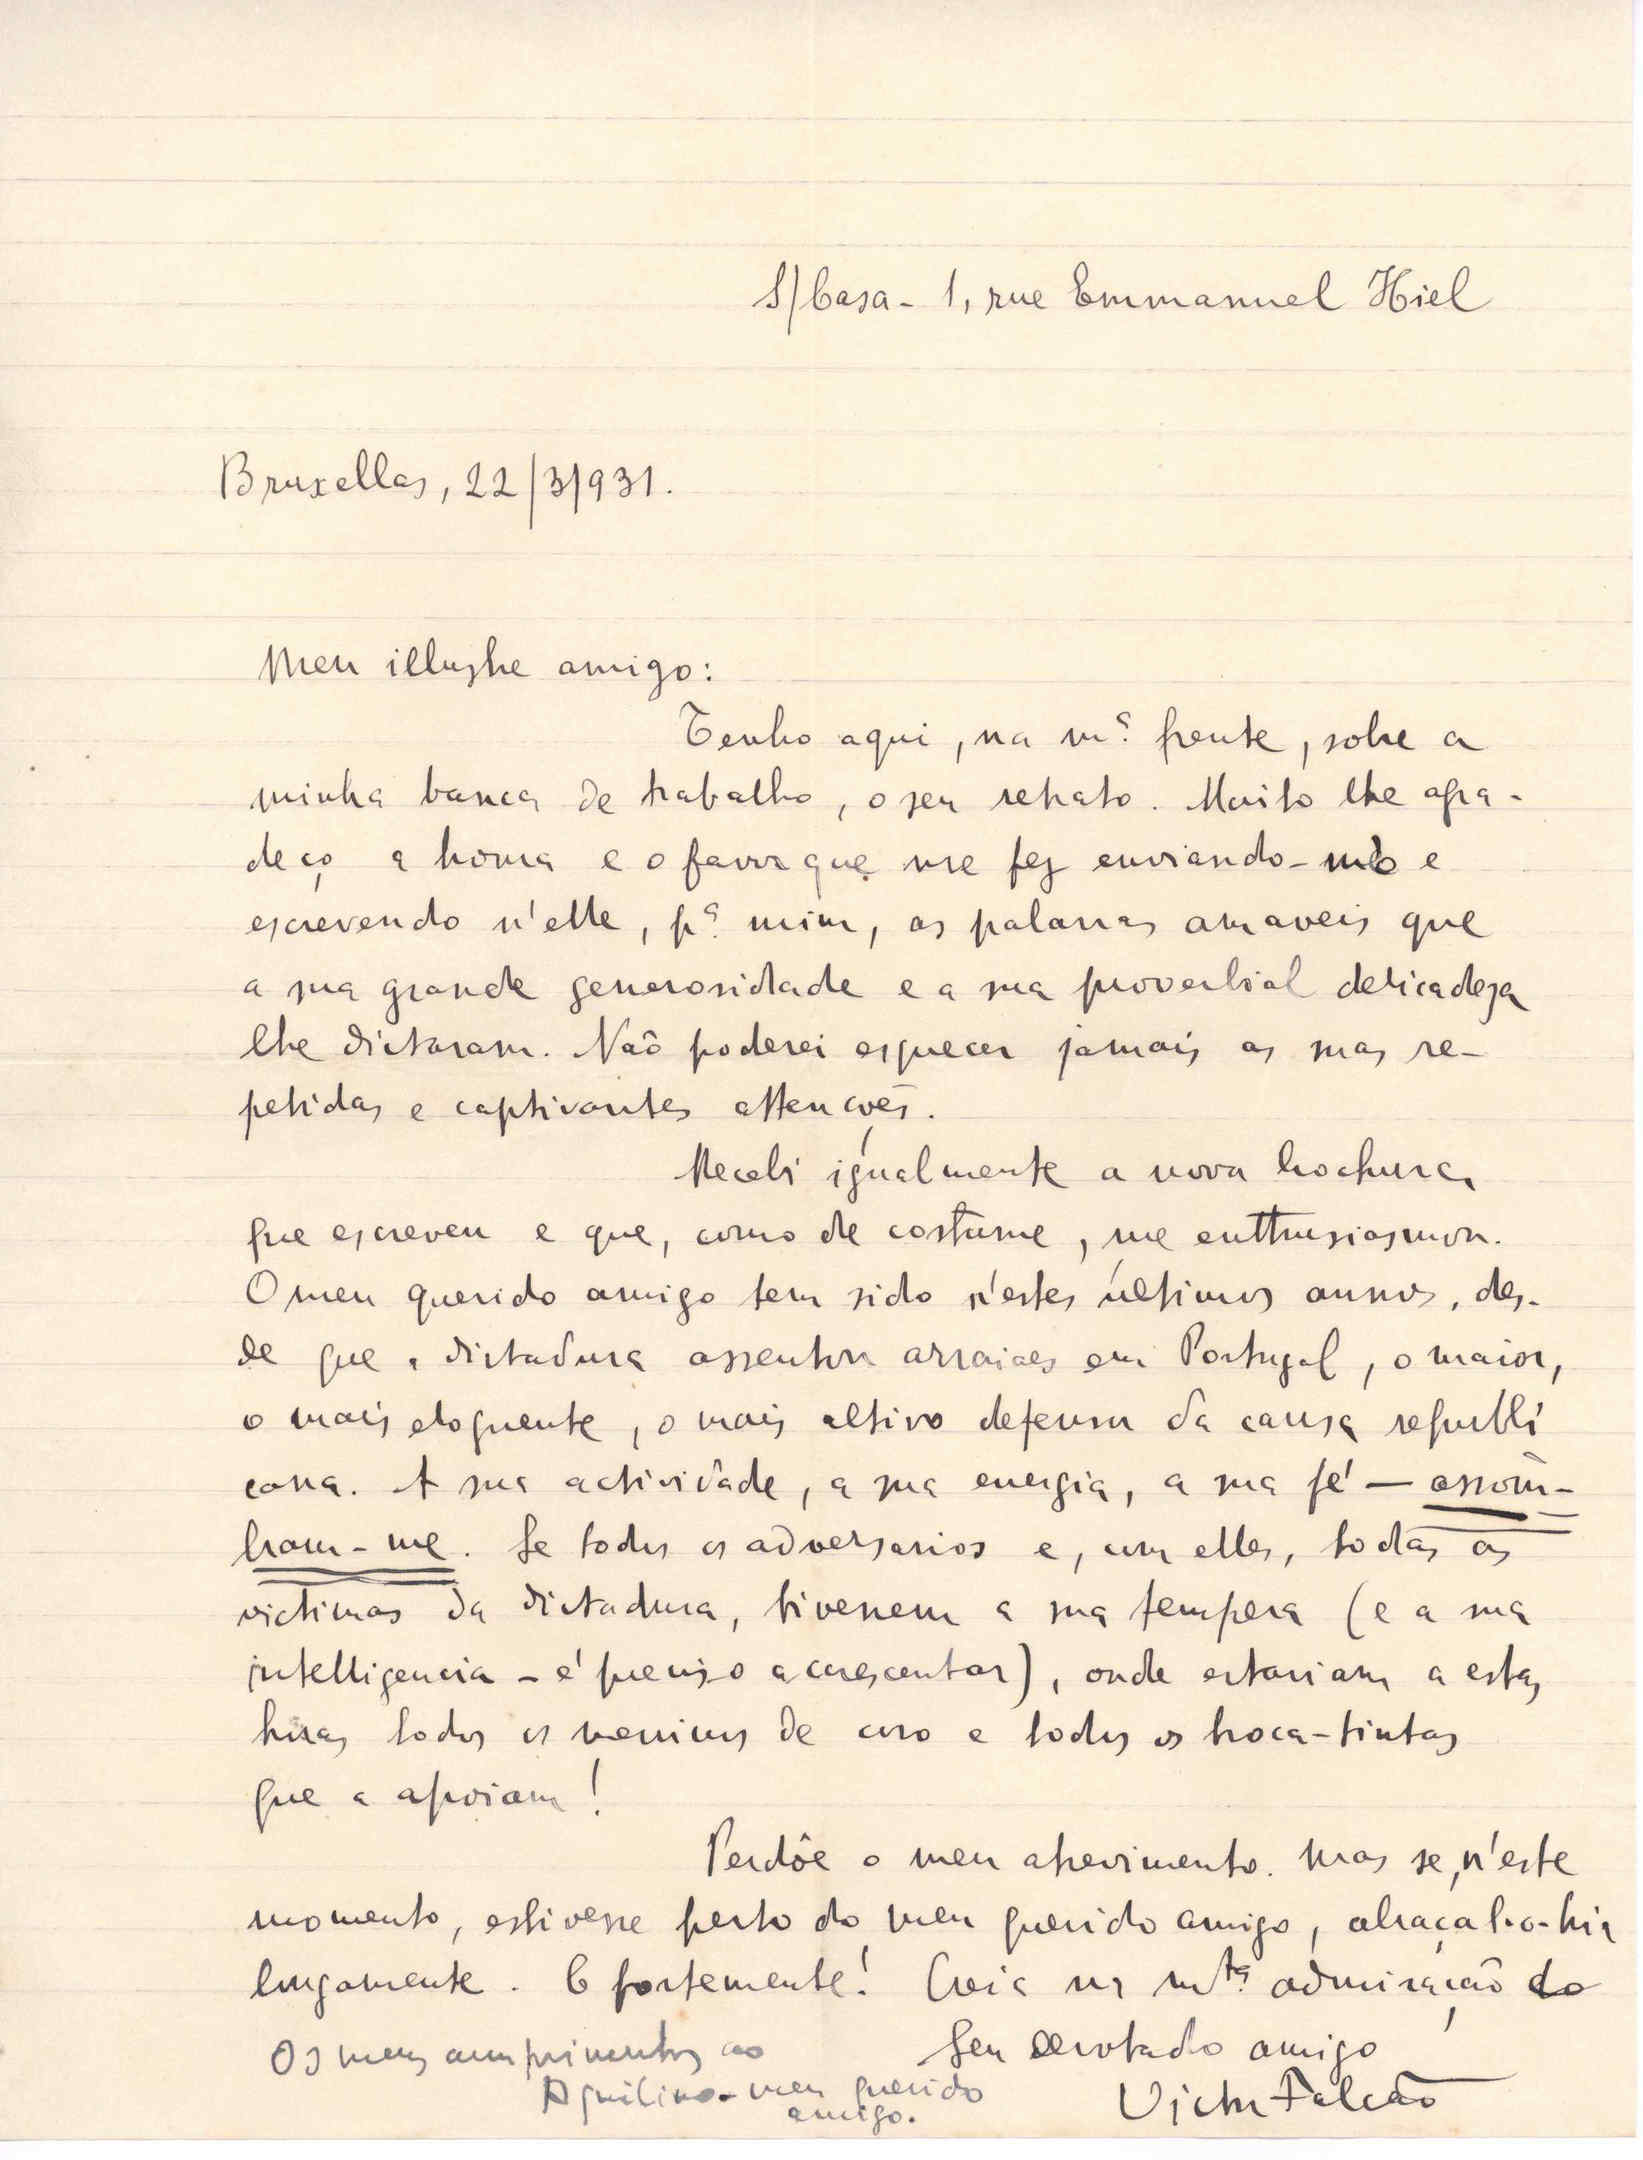 S/Casa - 1, rue Emmanuel Hiel
Bruxellas, 22/3/931.
Meu illustre amigo:
Tenho aqui, na m.ª frente, sobre a
minha banca de trabalho, o seu retrato. Muito lhe agra-
deço a honra e o favor que me fez enviando-m'o e
escrevendo n'elle, p.ª mim, as palavras amaveis que
a sua grande generosidade e a sua proverbial delicadeza
lhe dictaram. Não poderei esquecer jamais as suas re-
petidas e captivantes attenções.
Recebi igualmente a nova brochura
que escreveu e que, como de costume, me enthusiasmou.
O meu querido amigo tem sido n'estes últimos annos, des-
de que a dictadura assentou arraiaes em Portugal, o maior,
o mais eloquente, o mais altivo defensor da causa republi
cana. A sua actividade, a sua energia, a sua fé — assom-
bram-me. Se todos os adversarios e, com elles, todas as
victimas da dictadura, tivessem a sua tempera (e a sua
intelligencia - é preciso accrescentar), onde estariam a estas
horas todos os meninos de coro e todos os troca-tintas
que a apoiam!
Perdôe o meu atrevimento. Mas se, n'este
momento, estivesse perto do meu querido amigo, abraçal-o-hia
longamente. E fortemente! Creia na m.ta admiração do
Seu devotado amigo
Victor Falcão
Os meus cumprimentos ao
Aquilino - meu querido
amigo.